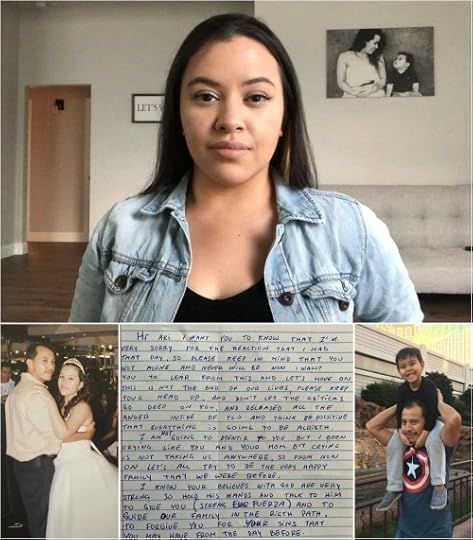 LET'S
HI ARI, I WANT YOU TO KNOW THAT I'M
VERY SORRY FOR THE REACTION THAT I HAD
THAT DAY, SO PLEASE KEEP IN MIND THAT YOU
NOT ALONE AND NEVER WILL BE NOW I WANT
YOU TO LEAR FROM THIS AND LET'S MOVE ON
THIS IS NOT THE END OF OUR LIVES PLEASE KEEP
YOUR HEAD UP, AND DON'T LET THE CRITICAS
GO DEEP ON YOU, AND RELEASED ALL THE
ANGER INSIDE OF YOU AND THINK BE POSITIVE
THAT EVERYTHING IS GOING TO BE ALRIGTH.
I AM NOT GOING TO MENTIR TO YOU BUT I BEEN
CRYING LIKE YOU AND YOUR MOM BUT CRYING
IS NOT TAKING US ANYWHERE SO FROM NOW
ON LET'S ALL TRY TO BE THE VERY HAPPY
FAMILY THAT WE WERE BEFORE.
I KNOW YOUR BELIEVES WITH GOD ARE VERY
STRONG SO HOLD HIS HANDS AND TALK TO HIM
TO GIVE YOU (STRENG FUERZA) AND TO
GUIDE OUR FAMILY IN THE RIGTH PATH.
TO FORGIVE YOU FOR YOUR SINS THAT
YOU MAY HAVE FROM THE DAY BEFORE.